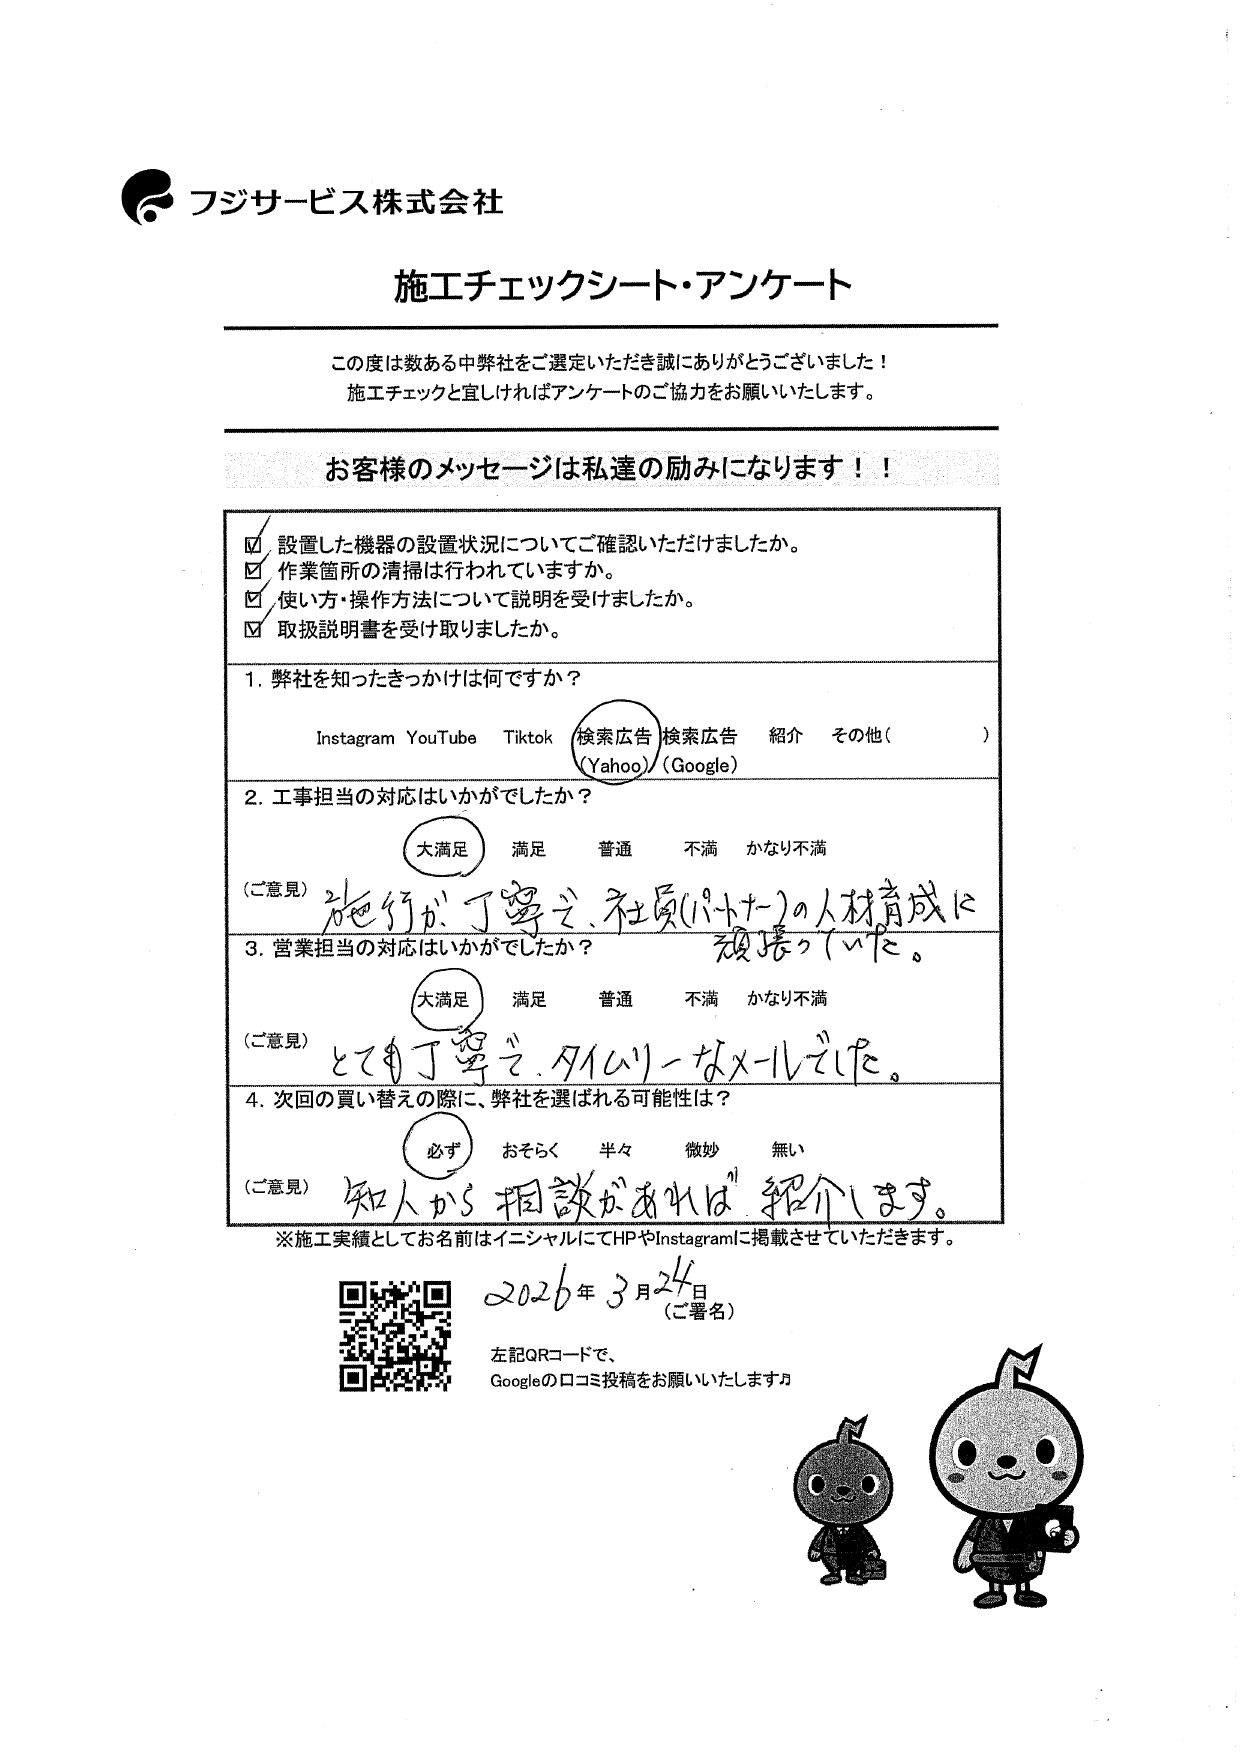 フジサービス株式会社
施工チェックシート・アンケート
この度は数ある中弊社をご選定いただき誠にありがとうございました！
施工チェックと宜しければアンケートのご協力をお願いいたします。
お客様のメッセージは私達の励みになります！！
☑ 設置した機器の設置状況についてご確認いただけましたか。
☑ 作業箇所の清掃は行われていますか。
☑ 使い方・操作方法について説明を受けましたか。
☑ 取扱説明書を受け取りましたか。
1. 弊社を知ったきっかけは何ですか？
Instagram YouTube Tiktok 検索広告 検索広告 紹介 その他( )
(Yahoo) (Google)
2. 工事担当の対応はいかがでしたか？
大満足 満足 普通 不満 かなり不満
(ご意見) 施行が、丁寧で、社員(パートナー)の人材育成に
頑張っていた。
3. 営業担当の対応はいかがでしたか？
大満足 満足 普通 不満 かなり不満
(ご意見) とても丁寧で、タイムリーなメールでした。
4. 次回の買い替えの際に、弊社を選ばれる可能性は？
必ず おそらく 半々 微妙 無い
(ご意見) 知人から相談があれば 紹介します。
※施工実績としてお名前はイニシャルにてHPやInstagramに掲載させていただきます。
2026年 3月24日
(ご署名)
左記QRコードで、
Googleの口コミ投稿をお願いいたします♬